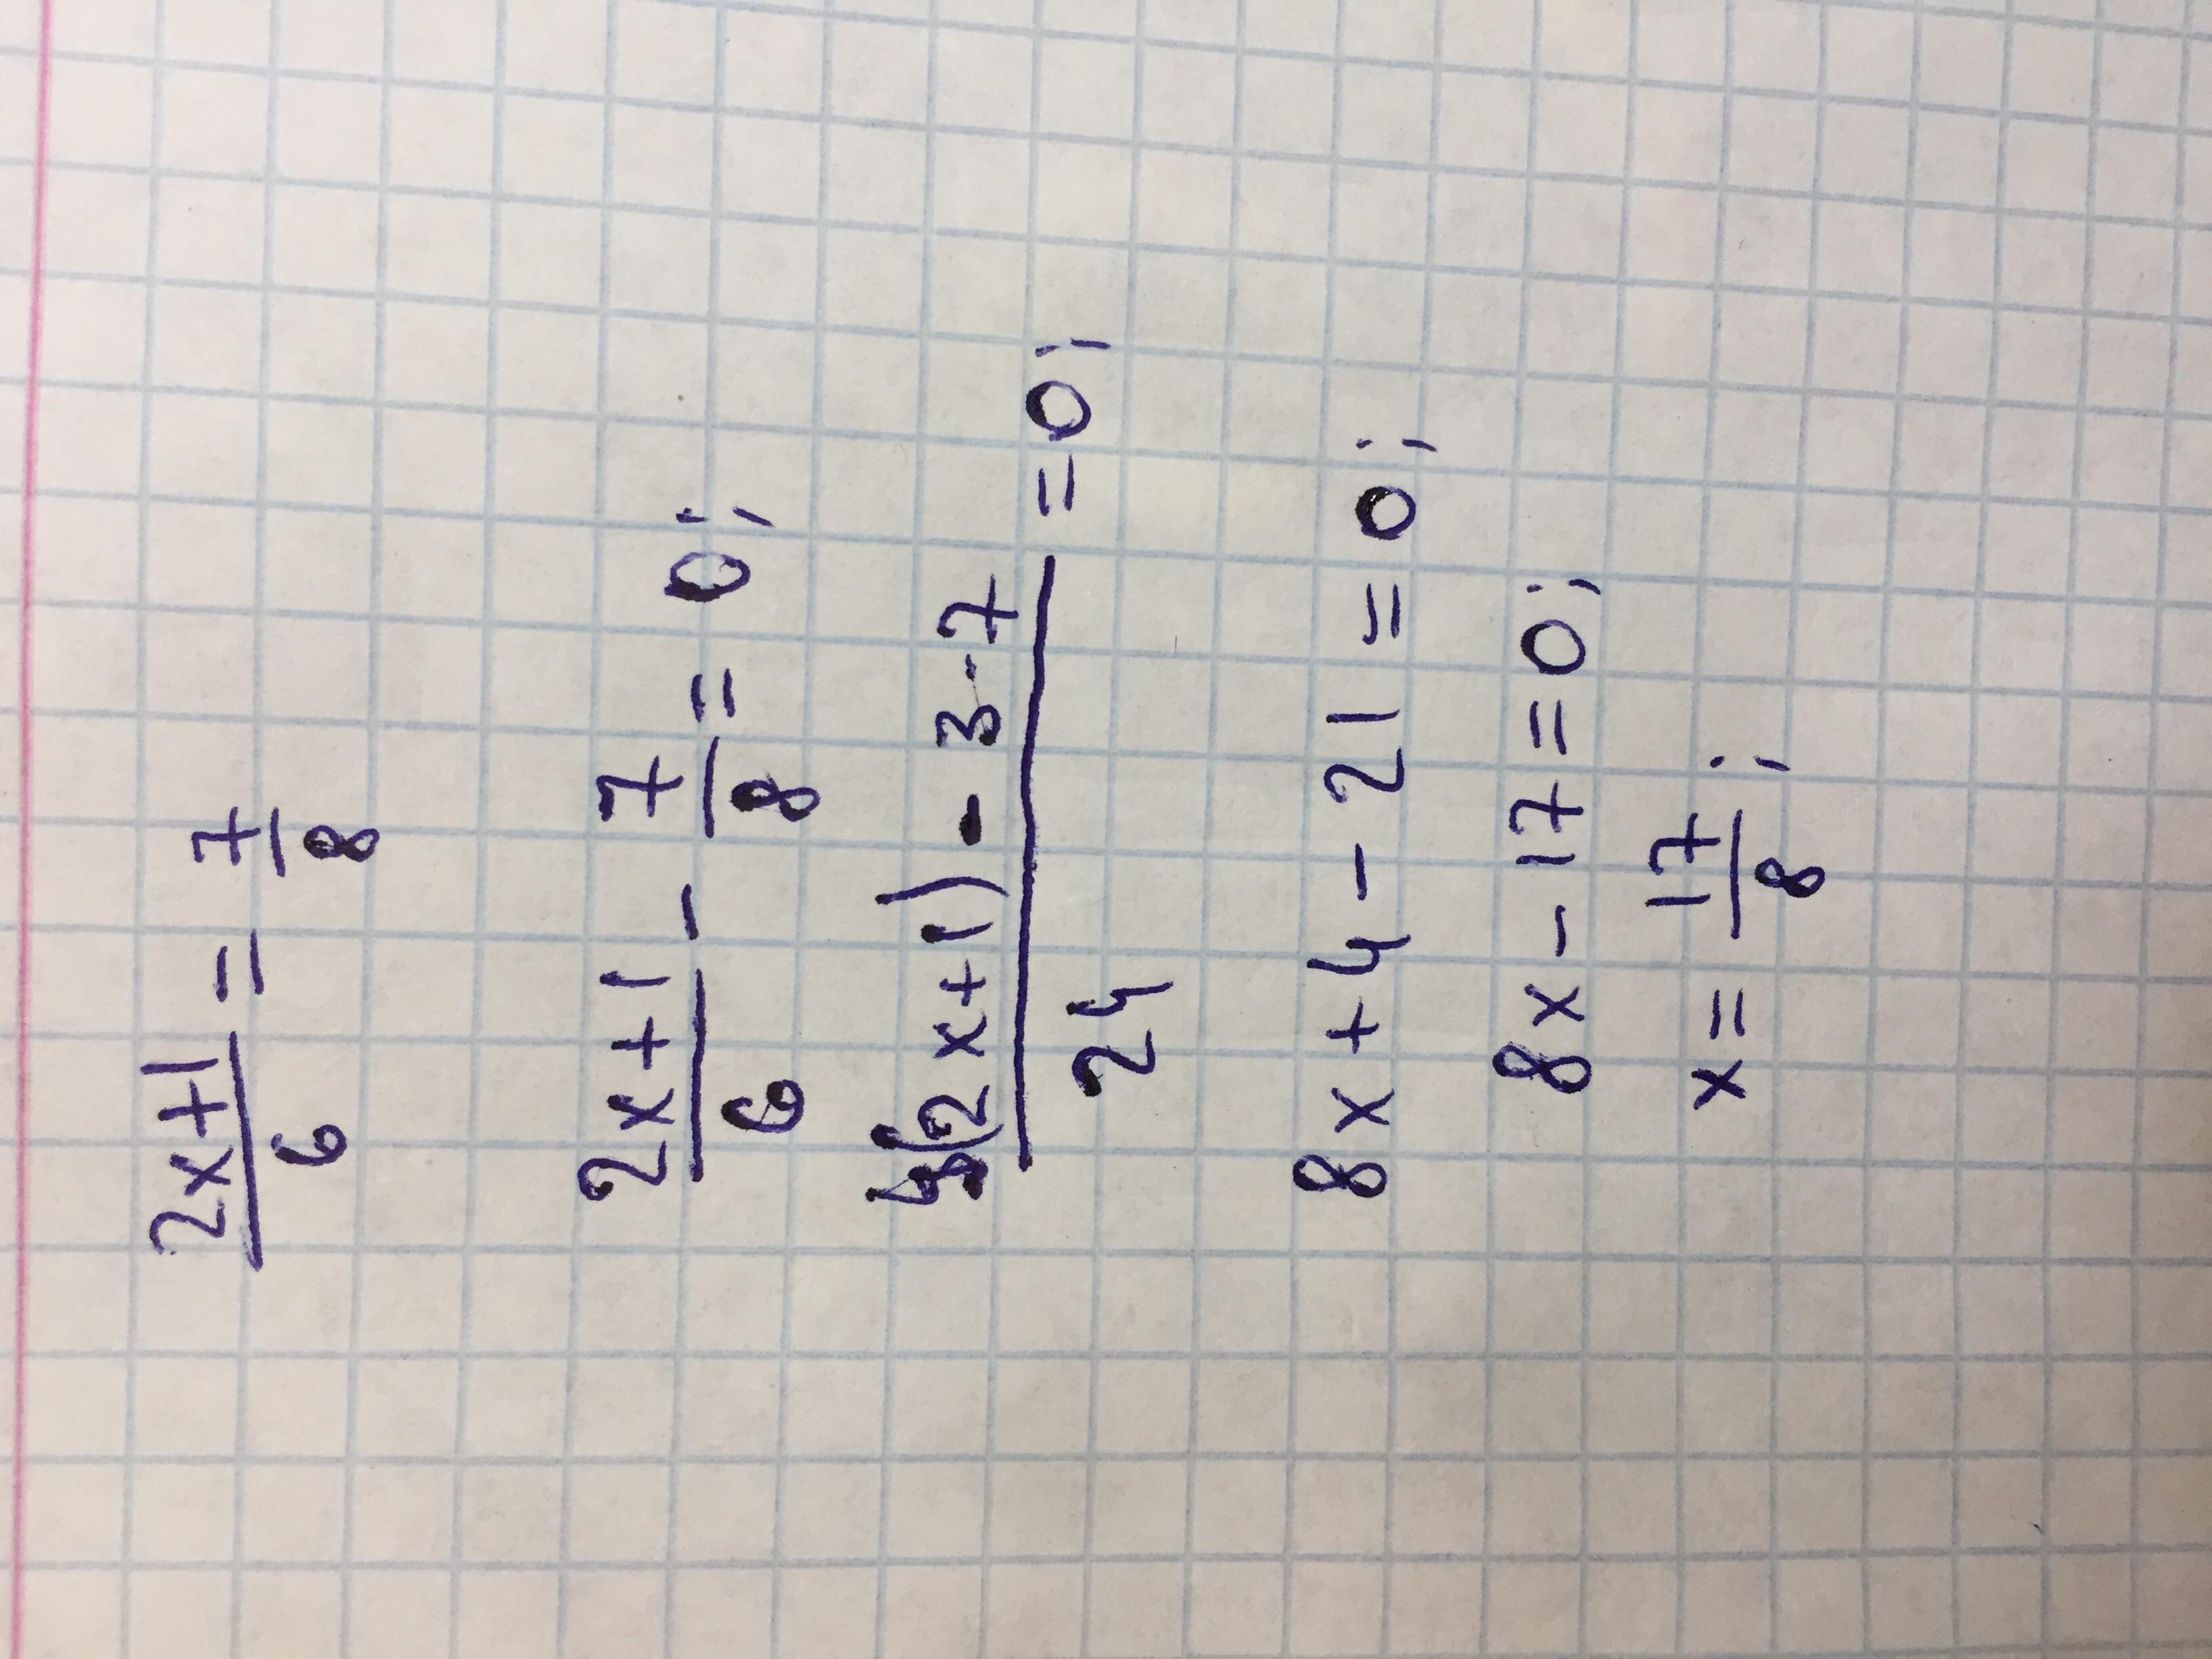 (2x+1)/6 = 7/8
(2x+1)/6 - 7/8 = 0;
(4(2x+1) - 3·7)/24 = 0;
8x + 4 - 21 = 0;
8x - 17 = 0;
x = 17/8;